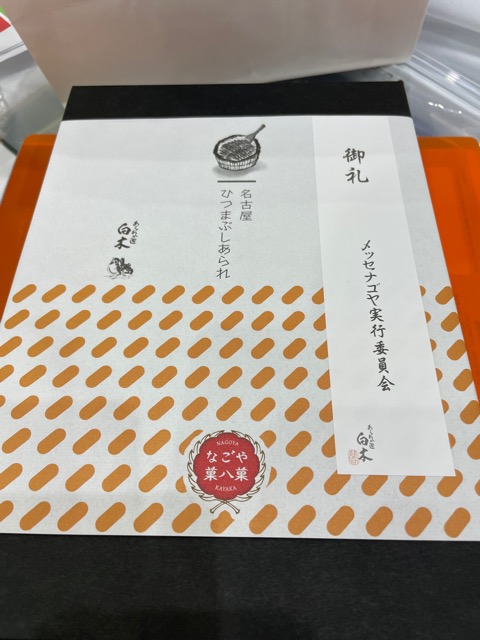 御礼
メッセナゴヤ実行委員会
あられの匠
白木
名古屋
ひつまぶしあられ
あられの匠
白木
NAGOYA
なごや
菓八菓
KAYAKA